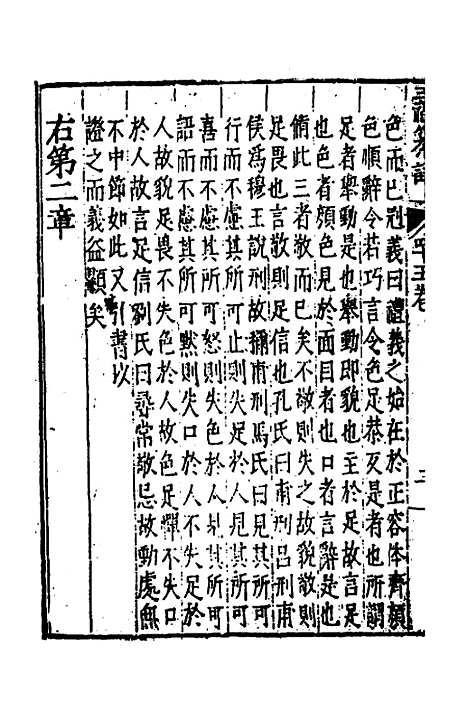 三禮纂註
四十五卷
色而巳冠義曰禮義之始在於正容体齊顔
色順辭令若巧言令色足恭又是者也所謂
足者舉動是也舉動即貌也主於足故言足
也色者顔色見於面目者也口者言辭是也
脩此三者敬而巳矣不敬則失之故貌敬則
足畏也言敬則足信也孔氏曰甫刑吕刑甫
侯爲穆王說刑故稱甫刑馬氏曰見其所可
行而不慮其所可止則失足於人見其所可
喜而不慮其所可怒則失色於人見其所可
語而不慮其所可黙則失口於人不失足於
人故貌足畏不失色於人故色足憚不失口
於人故言足信劉氏曰尋常敬忌故動處無
不中節如此又引書以
證之而義益顯矣
右第二章